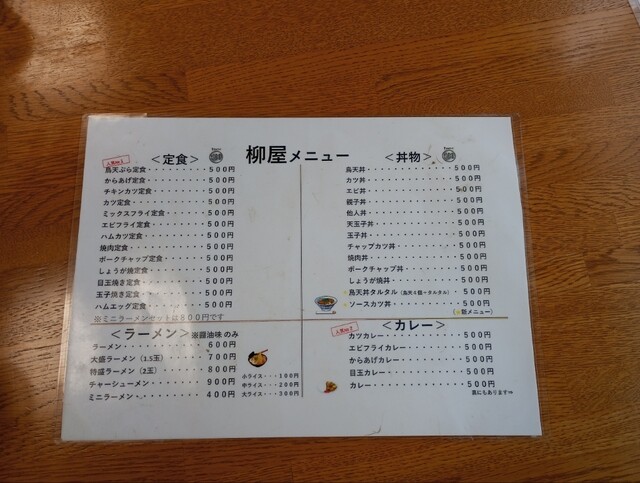 柳屋メニュー
＜定食＞
人気No.1
鳥天ぷら定食・・・・・・・・・500円
からあげ定食・・・・・・・・・500円
チキンカツ定食・・・・・・・・500円
カツ定食・・・・・・・・・・・500円
ミックスフライ定食・・・・・・500円
エビフライ定食・・・・・・・・500円
ハムカツ定食・・・・・・・・・500円
焼肉定食・・・・・・・・・・・500円
ポークチャップ定食・・・・・・500円
しょうが焼定食・・・・・・・・500円
目玉焼き定食・・・・・・・・・500円
玉子焼き定食・・・・・・・・・500円
ハムエッグ定食・・・・・・・・500円
※ミニラーメンセットは800円です
＜ラーメン＞※醤油味のみ
ラーメン・・・・・・・・・・・600円
大盛ラーメン（1.5玉）・・・・700円
特盛ラーメン（2玉）・・・・・800円
チャーシューメン・・・・・・・900円
ミニラーメン・・・・・・・・・400円
小ライス・・・150円
中ライス・・・200円
大ライス・・・300円
＜丼物＞
鳥天丼・・・・・・・・・・・・500円
カツ丼・・・・・・・・・・・・500円
エビ丼・・・・・・・・・・・・500円
親子丼・・・・・・・・・・・・500円
他人丼・・・・・・・・・・・・500円
天玉子丼・・・・・・・・・・・500円
玉子丼・・・・・・・・・・・・500円
チャップカツ丼・・・・・・・・500円
焼肉丼・・・・・・・・・・・・500円
ポークチャップ丼・・・・・・・500円
しょうが焼丼・・・・・・・・・500円
★鳥天丼タルタル・・500円
★ソースカツ丼・・・・・・・・500円
（★新メニュー）
＜カレー＞
カツカレー・・・・・・・・・・500円
エビフライカレー・・・・・・・500円
からあげカレー・・・・・・・・500円
目玉カレー・・・・・・・・・・500円
カレー・・・・・・・・・・・・500円
裏にもあります